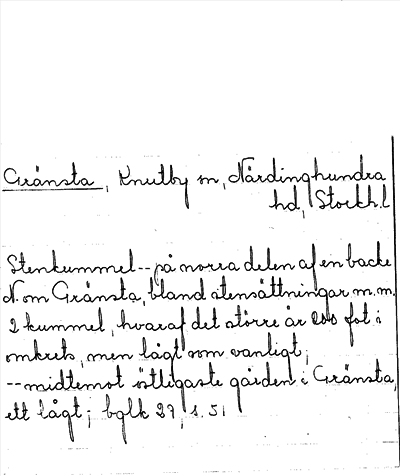 Gränsta, Knutby sn, Närdinghundra
hd, Stockh.l
Stenkummel -- på norra delen af en backe
N. om Gränsta, bland stensättningar m.m.
2 kummel, hvaraf det större är 200 fot i
omkrets, men lågt som vanligt;
-- midtemot östligaste gården i Gränsta,
ett lågt; bglk 29, s. 5;